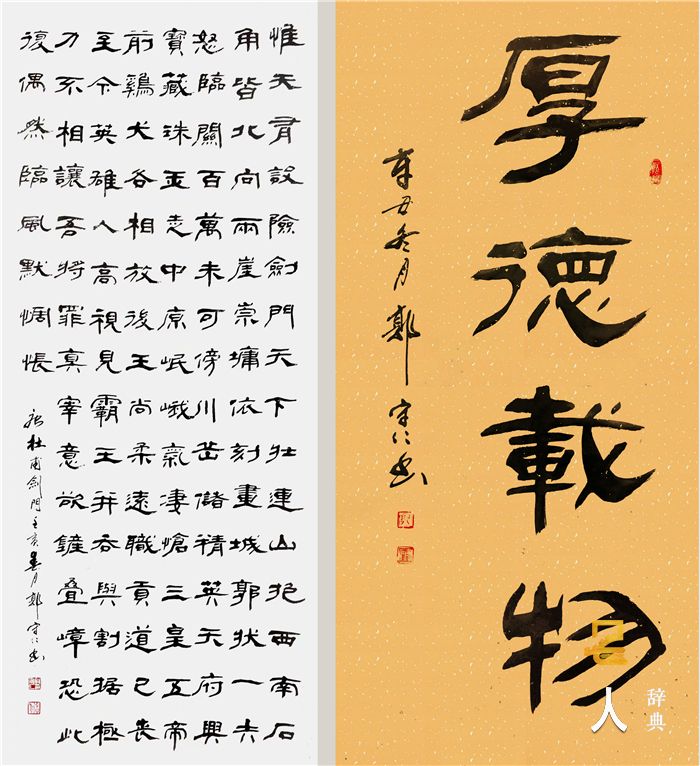 厚德載物
辛丑冬月 守仁書
惟天有設險劍門天下壯連山抱西南石
角皆北向兩崖崇墉依刻畫城郭狀一夫
怒臨關百萬未可傍川岳儲精英天府興
寶藏珠玉走中原岷峨氣淒愴三皇五帝
前鷄犬各相放後王尚柔遠職貢道已喪
至今英雄人高視見霸王并吞與割據極
力不相讓吾將罪真宰意欲鏟疊嶂恐此
復偶然臨風默惆悵
杜甫劍門 亥春月 守仁書
名人辞典